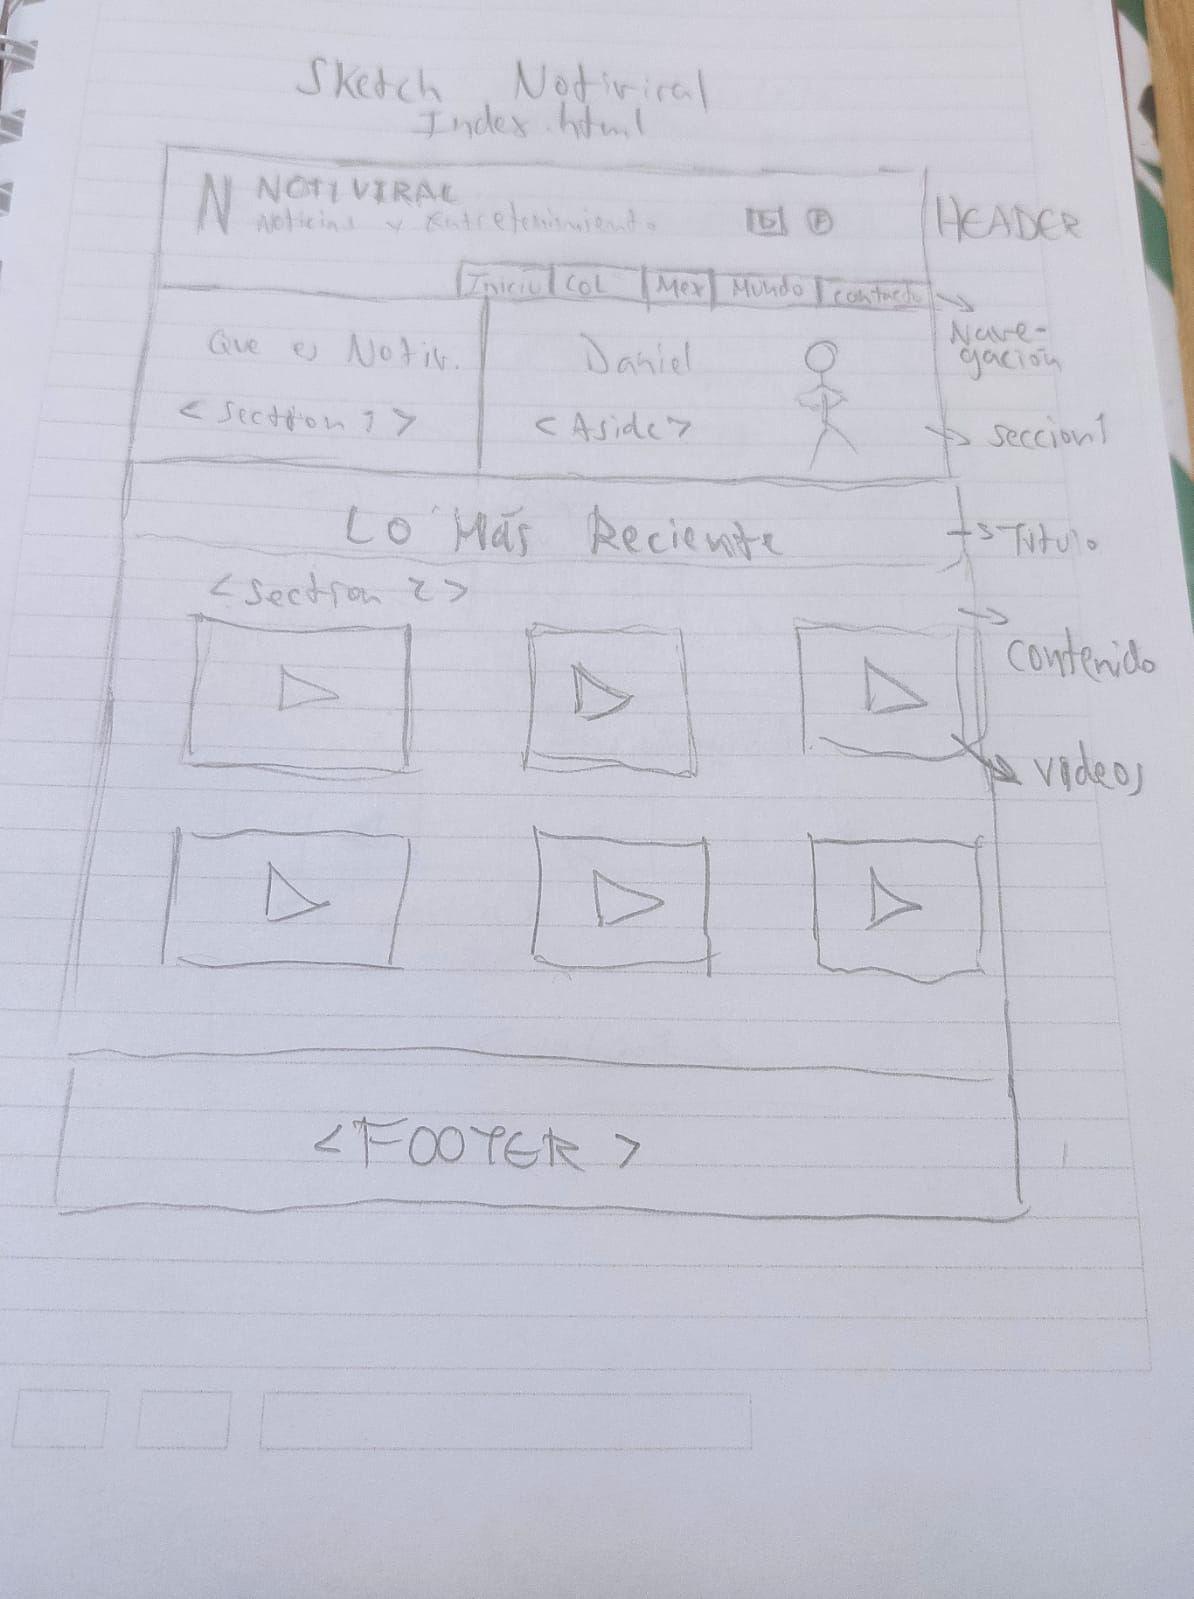 Sketch Notiviral
Index.html
N NOTIVIRAL
Noticias y Entretenimiento.
HEADER
Inicio COL Mex Mundo contacto
Nave-
gación
Que es Notiv.
Daniel
<section 1>
<Aside>
seccion1
Lo Más Reciente
Titulo
<section 2>
contenido
videos
<FOOTER>